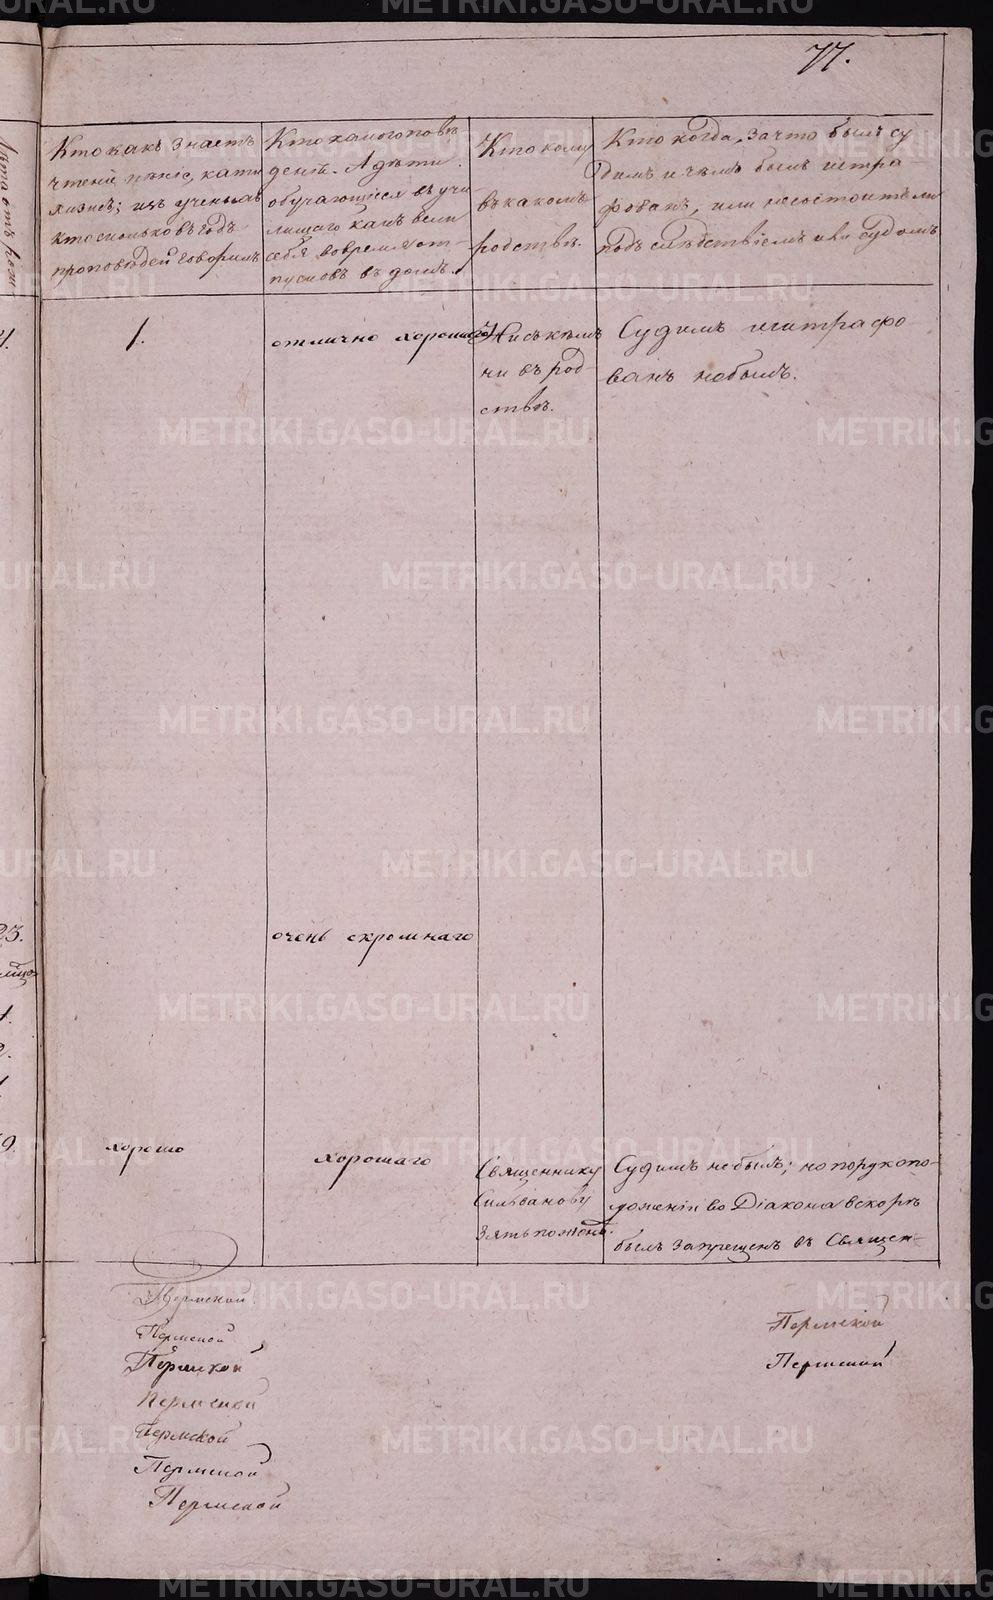 77.
Кто какъ знаетъ
чтенiе пѣнiе, кати
хизисъ; изъ ученыхъ
кто сколько въ годъ
проповѣдей говорилъ
Кто какого пове
денiя. А дѣти
обучающiеся въ учи
лищахъ какъ вели
себя во время от-
пусковъ въ домъ.
Кто кому
въ какомъ
родствѣ.
Кто когда, за что былъ су
димъ и чѣмъ былъ штра
фованъ, или не состоитъ ли
подъ слѣдствiемъ или судомъ
1.
отлично хорошаго
Ни съ кѣмъ
ни въ род
ствѣ.
Судимъ и штрафо
ванъ не былъ.
23.
очень скромнаго
хорошо
хорошаго
Священнику
Сильванову
зять по женѣ.
Судимъ не былъ; но по рукопо-
ложенiи во Дiакона вскорѣ
былъ запрещенъ въ Священ-
Пермской
Пермской
Пермской
Пермской
Пермской
Пермской
Пермской
Пермской
Пермской
METRIKI.GASO-URAL.RU